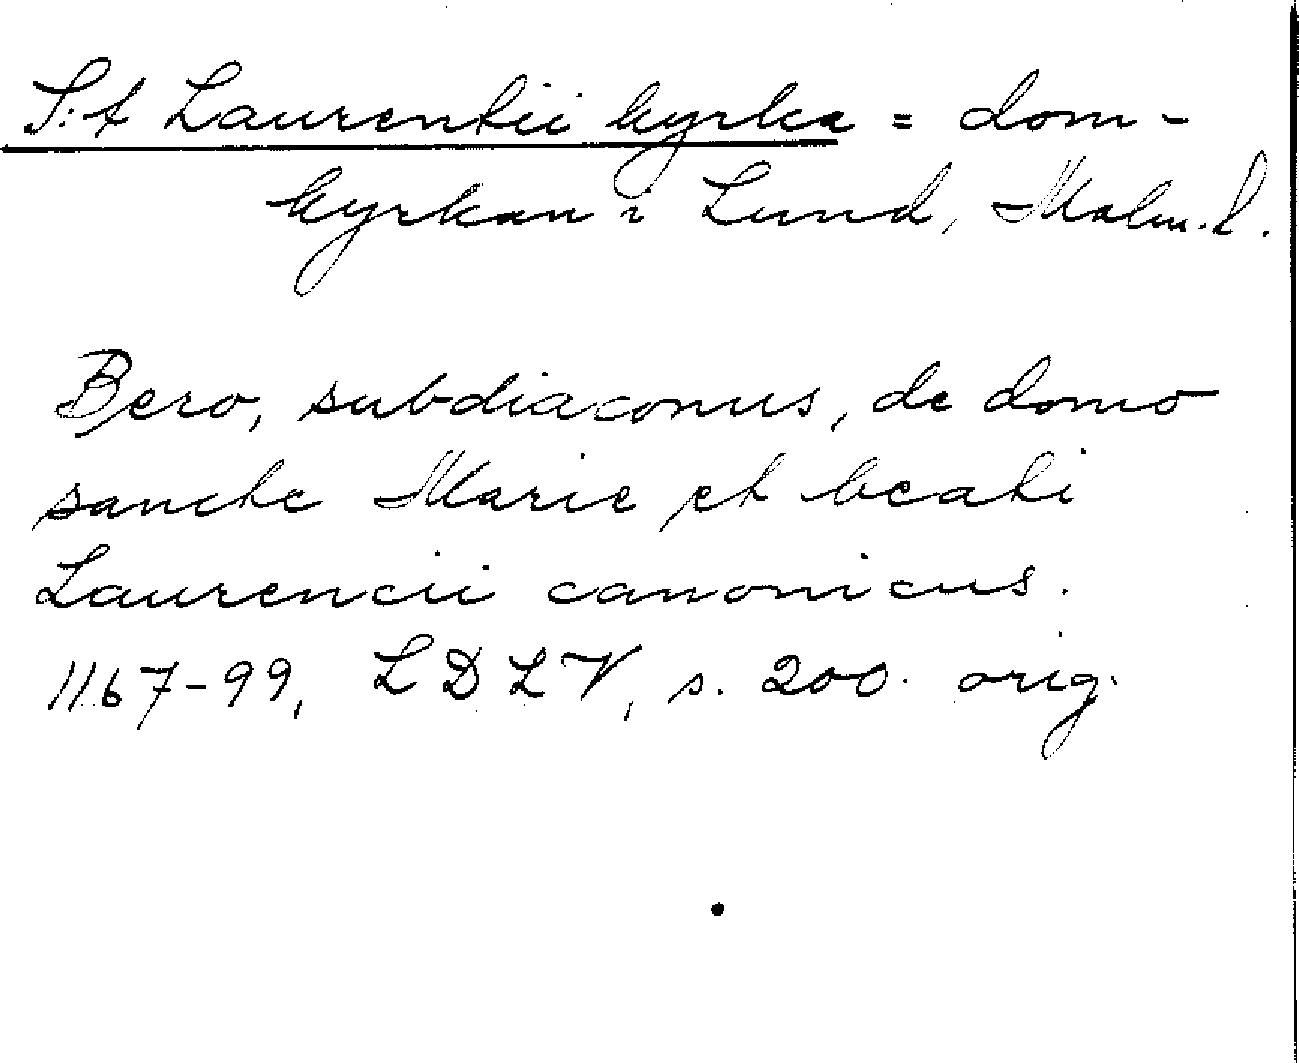 S:t Laurentii kyrka = dom-
kyrkan i Lund, Malm. l.
Bero, subdiaconus, de domo
sancte Marie et beati
Laurencii canonicus.
1167-99, LDLV, s. 200. orig.